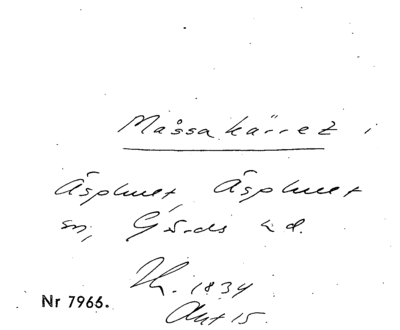 Måssakärret i
Äsphult, Äsphult
sn, Gärds hd.
Nr 7966.
1834
Akt 15.